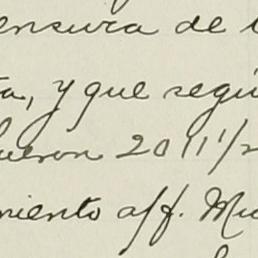 ensura de
ta, y que segú
fueron 2011½
miento aff. Mu